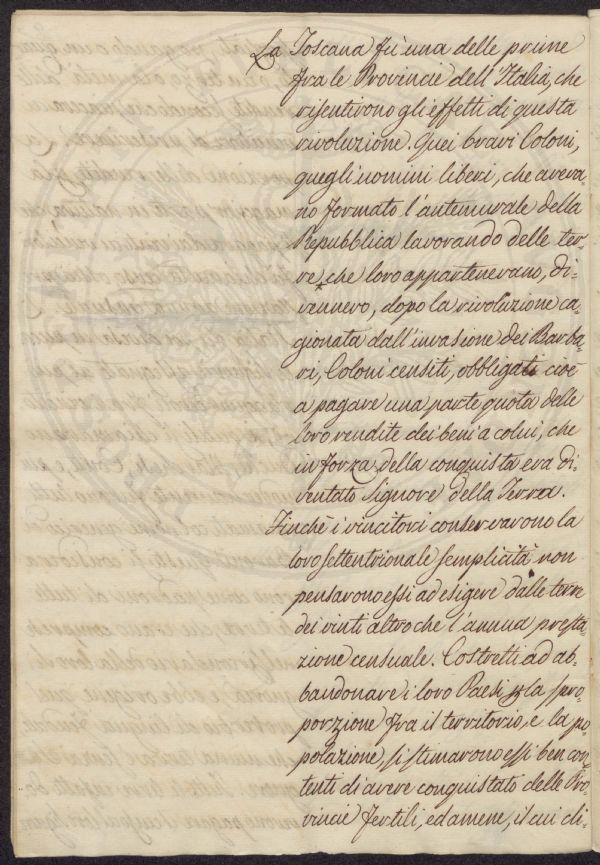 La Toscana fu' una delle prime
fra le Provincie dell'Italia, che
risentirono gli effetti di questa
rivoluzione. Quei bravi Coloni,
quegli uomini liberi, che aveva-
no formato l'antemurale della
Repubblica lavorando delle ter-
re, che loro appartenevano, di-
vennero, dopo la rivoluzione ca-
gionata dall'invasione dei Barba-
ri, Coloni censiti, obbligati cioè
a pagare una parte quota delle
loro rendite dei beni a colui, che
in forza della conquista era di-
ventato Signore della Terra.
Finchè i vincitori conservarono la
loro settentrionale semplicità non
pensarono essi ad esigere dalle terre
dei vinti altro che l'annua presta-
zione censuale. Costretti ad ab-
bandonare i loro Paesi la spro-
porzione fra il territorio, e la po-
polazione, si stimarono essi ben con-
tenti di avere conquistato delle Pro-
vincie fertili, ed amene, il cui cli-